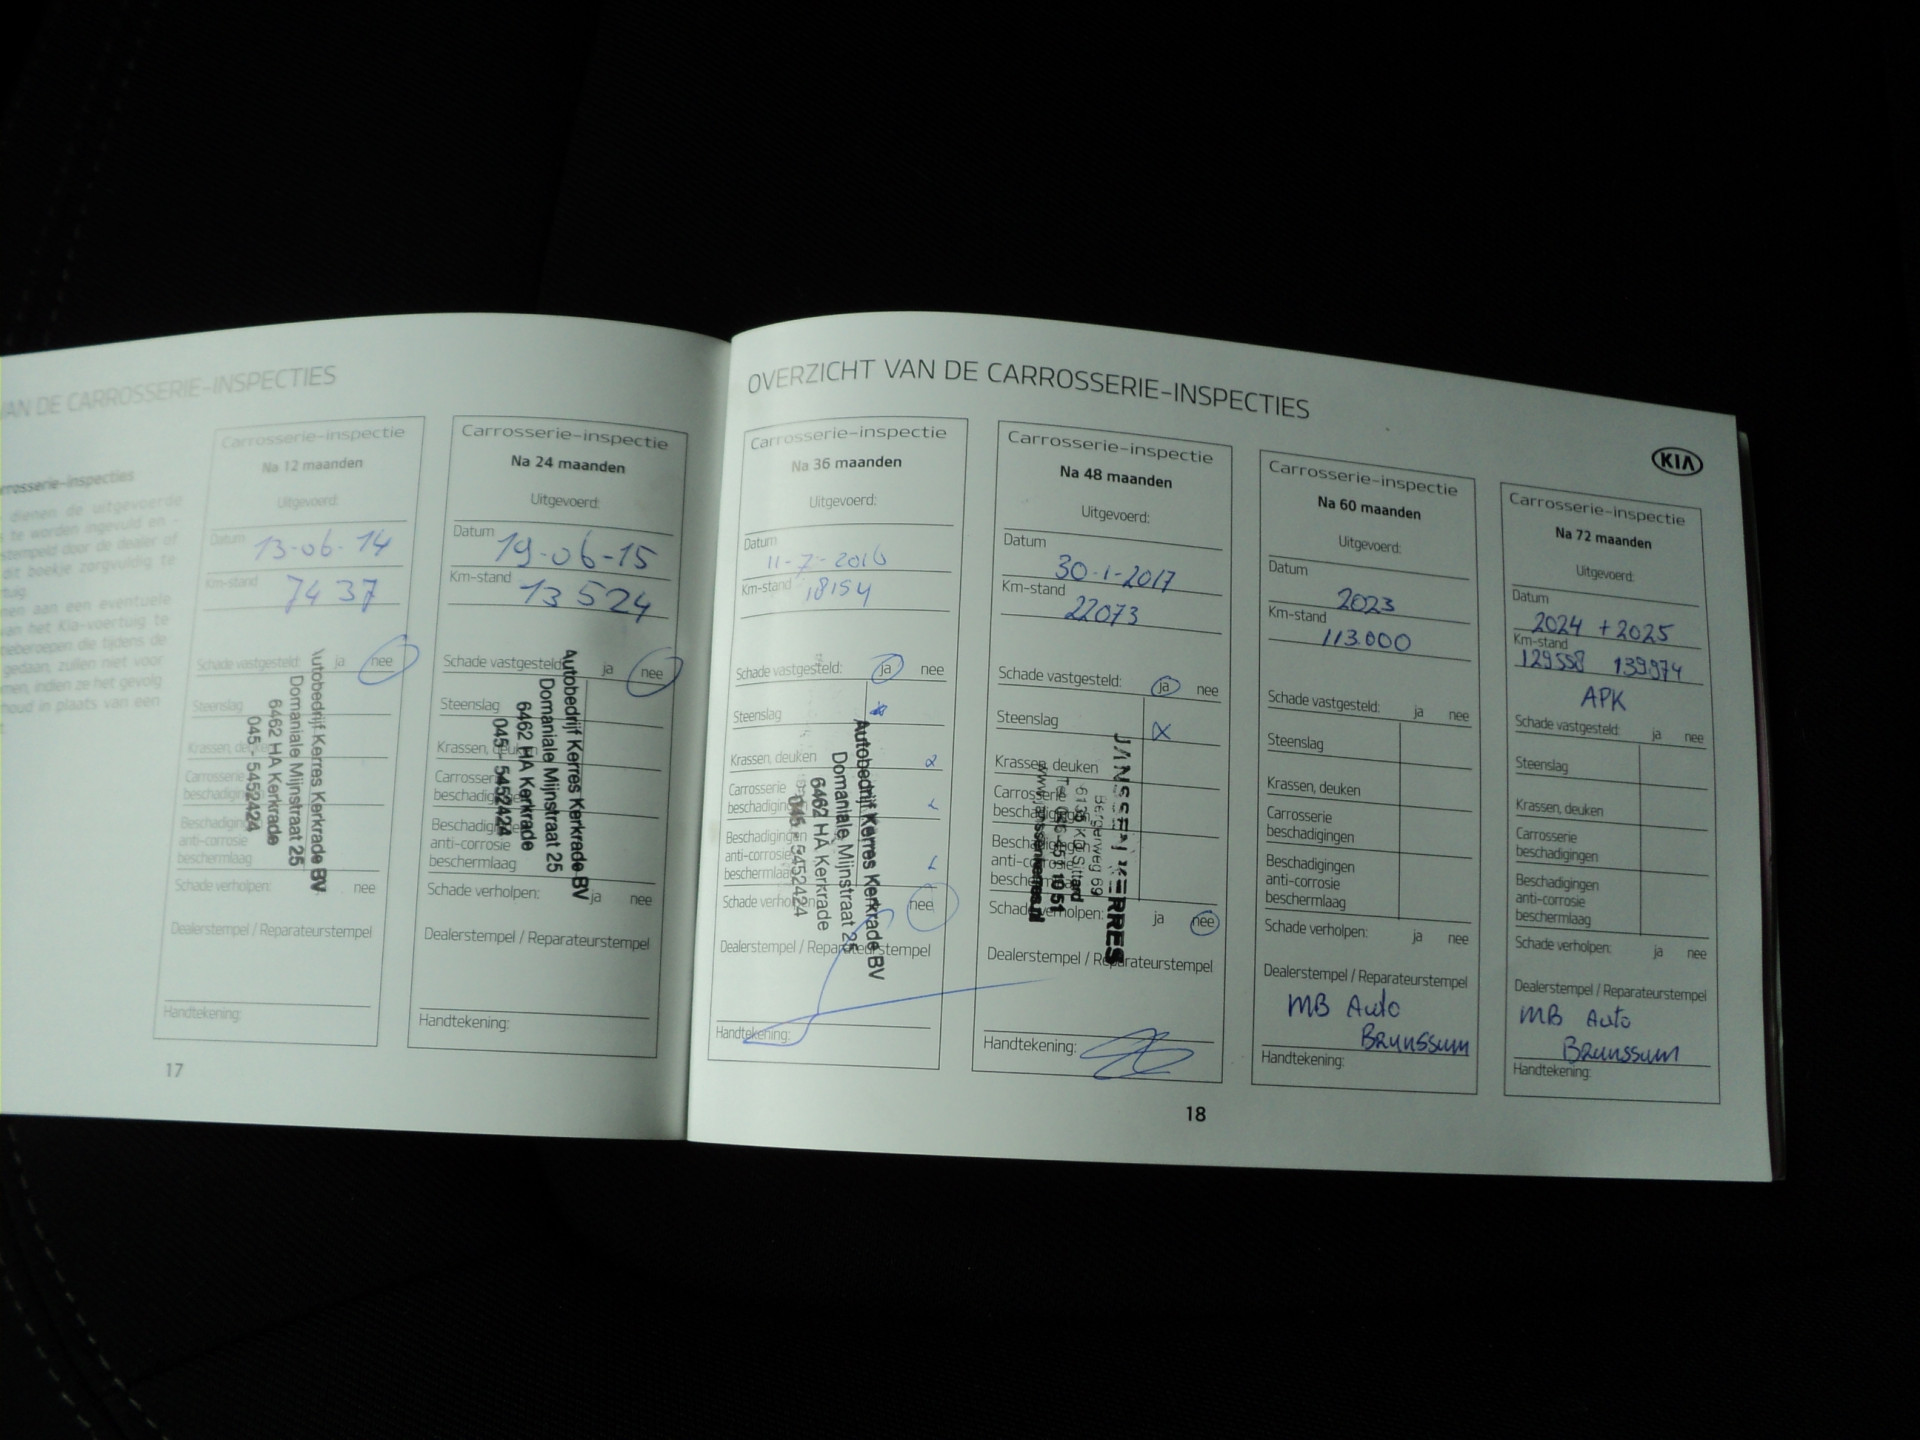 VAN DE CARROSSERIE-INSPECTIES
dienen de uitgevoerde
te worden ingevuld en
door de dealer of
dit boekje zorgvuldig te
aan een eventuele
van het Kia-voertuig te
die tijdens de
gedaan, zullen niet voor
indien ze het gevolg
in plaats van een
Carrosserie-inspectie
Na 12 maanden
Uitgevoerd:
Datum 13-06-14
Km-stand 7437
Schade vastgesteld: ja nee
Steenslag
Krassen,
Carrosserie
Beschadigingen
anti-corrosie
beschermlaag
Schade verholpen: nee
Autobedrijf Kerres Kerkrade BV
Domaniale Mijnstraat 25
6462 HA Kerkrade
045 - 5452424
Dealerstempel / Reparateurstempel
Handtekening:
17
Carrosserie-inspectie
Na 24 maanden
Uitgevoerd:
Datum 19-06-15
Km-stand 13524
Schade vastgesteld: ja nee
Steenslag
Krassen, deuken
anti-corrosie
beschermlaag
Schade verholpen: ja nee
Autobedrijf Kerres Kerkrade BV
Domaniale Mijnstraat 25
6462 HA Kerkrade
045 - 5452424
Dealerstempel / Reparateurstempel
Handtekening:
OVERZICHT VAN DE CARROSSERIE-INSPECTIES
KIA
Carrosserie-inspectie
Na 36 maanden
Uitgevoerd:
Datum
11-7-2016
Km-stand 18154
Schade vastgesteld: ja nee
Steenslag
Krassen, deuken
Carrosserie
beschadigingen
Beschadigingen
anti-corrosie
beschermlaag
Schade verholpen: nee
Autobedrijf Kerres Kerkrade BV
Domaniale Mijnstraat 25
6462 HA Kerkrade
045 - 5452424
Dealerstempel / Reparateurstempel
Handtekening:
Carrosserie-inspectie
Na 48 maanden
Uitgevoerd:
Datum
30-1-2017
Km-stand
22073
Schade vastgesteld: ja nee
Steenslag x
Krassen, deuken
Carrosserie
beschadigingen
Schade verholpen: ja nee
JANSSEN KERRES
Bergerweg 69
Sittard
Dealerstempel / Reparateurstempel
Handtekening:
Carrosserie-inspectie
Na 60 maanden
Uitgevoerd:
Datum
2023
Km-stand
113.000
Schade vastgesteld: ja nee
Steenslag
Krassen, deuken
Carrosserie
beschadigingen
Beschadigingen
anti-corrosie
beschermlaag
Schade verholpen: ja nee
Dealerstempel / Reparateurstempel
MB Auto
Brunssum
Handtekening:
Carrosserie-inspectie
Na 72 maanden
Uitgevoerd:
Datum
2024 + 2025
Km-stand
129558 139974
APK
Schade vastgesteld: ja nee
Steenslag
Krassen, deuken
Carrosserie
beschadigingen
Beschadigingen
anti-corrosie
beschermlaag
Schade verholpen: ja nee
Dealerstempel / Reparateurstempel
MB Auto
Brunssum
Handtekening:
18